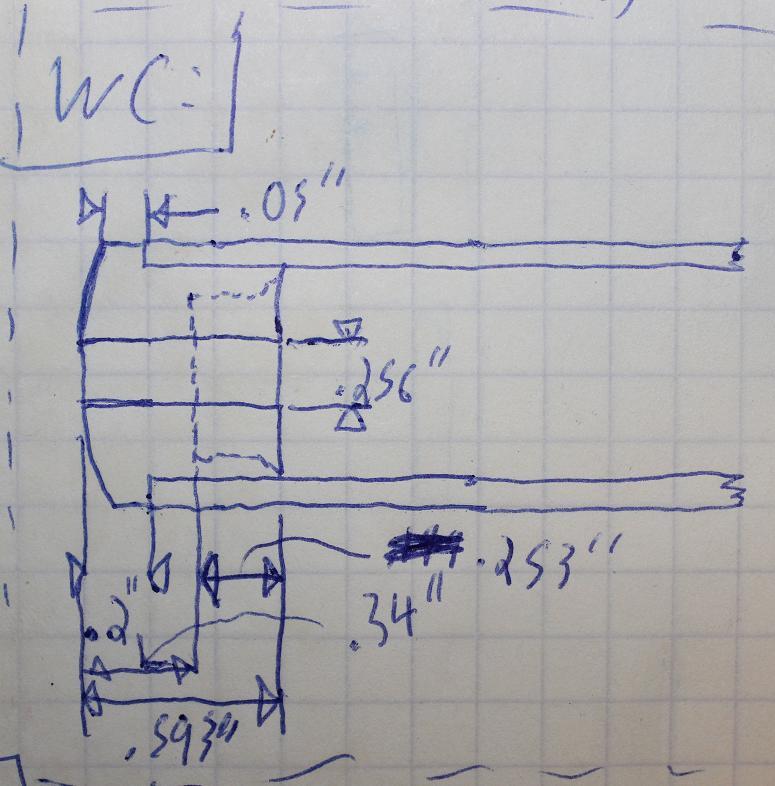 WC:
.05"
.256"
.253"
.2"
.34"
.593"